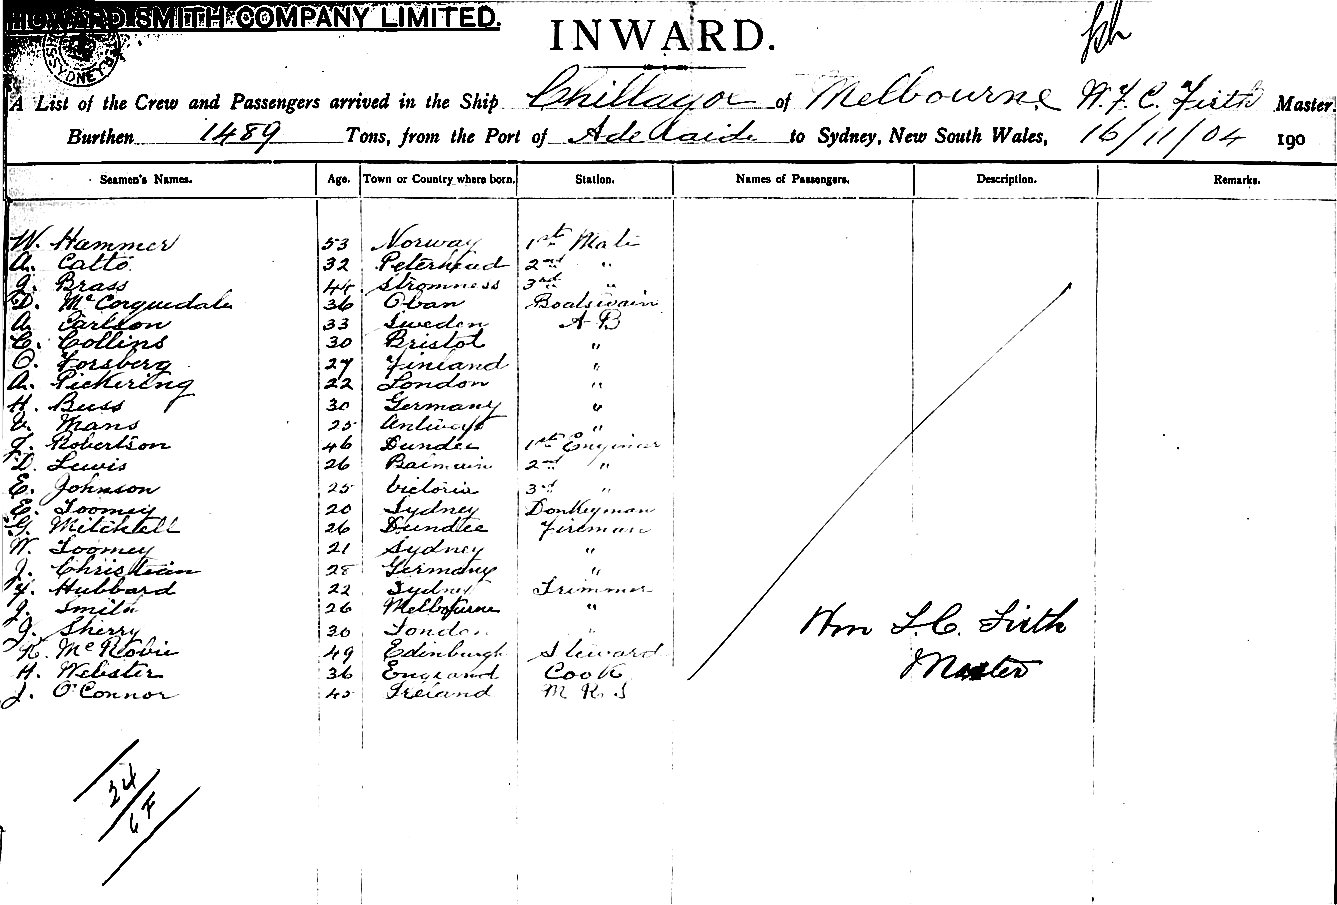 HOWARD SMITH COMPANY LIMITED.
SYDNEY
INWARD.
A List of the Crew and Passengers arrived in the Ship Chillagoe of Melbourne W. F. C. Firth Master.
Burthen 1489 Tons, from the Port of Adelaide to Sydney, New South Wales, 16/11/04 190
Seamen's Names. Age. Town or Country where born. Station. Names of Passengers. Description. Remarks.
W. Hammer 53 Norway 1st Mate
A. Catto 32 Peterhead 2nd "
J. Brass 44 Stromness 3rd "
D. McCorquedale 36 Oban Boatswain
A. Carlson 33 Sweden A B
C. Collins 30 Bristol "
O. Forsberg 27 Finland "
A. Pickering 22 London "
H. Buss 30 Germany "
Mans 25 Antwerp "
Robertson 46 Dundee 1st Engineer
D. Lewis 26 Balmain 2nd "
E. Johnson 25 Victoria 3rd "
E. Toomey 20 Sydney Donkeyman
G. Mitchell 26 Dundee Fireman
W. Toomey 21 Sydney "
J. Christian 28 Germany "
Hubbard 22 Sydney Trimmer
J. Smith 26 Melbourne "
J. Sherry 30 London "
McRobie 49 Edinburgh Steward
H. Webster 36 England Cook
J. O'Connor 45 Ireland M R S
Wm F. C. Firth
Master
24
6 F